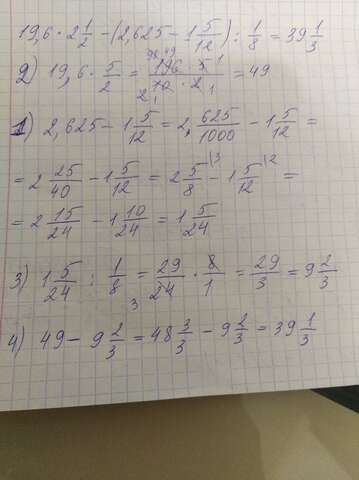 19,6 · 2 1/2 − (2,625 − 1 5/12) : 1/8 = 39 1/3
2) 19,6 · 5/2 = 196 · 5 / 10 · 2 = 49
1) 2,625 − 1 5/12 = 2, 625/1000 − 1 5/12 =
= 2 25/40 − 1 5/12 = 2 5/8 \3 − 1 5/12 \2 =
= 2 15/24 − 1 10/24 = 1 5/24
3) 1 5/24 : 1/8 = 29/24 · 8/1 = 29/3 = 9 2/3
4) 49 − 9 2/3 = 48 3/3 − 9 2/3 = 39 1/3